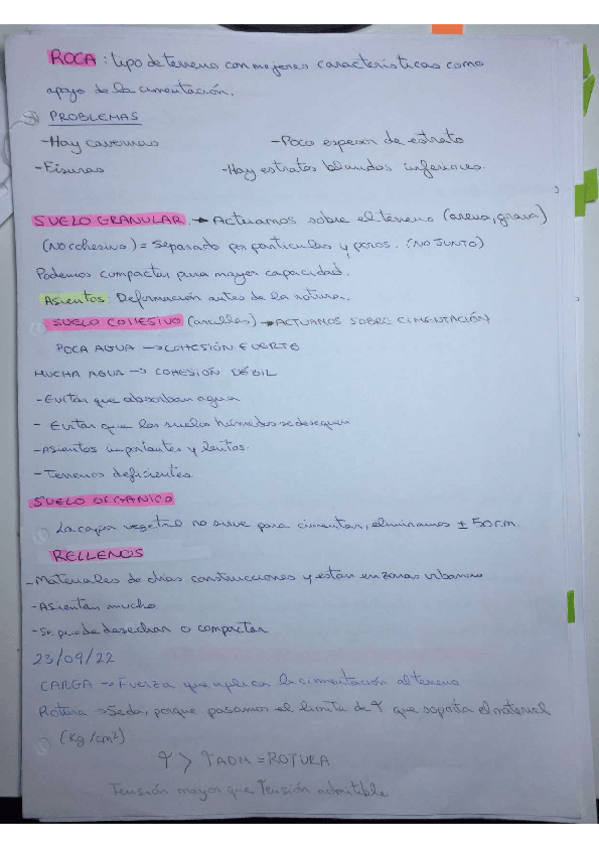 ROCA: tipo de terreno con mejores características como
apoyo de la cimentación.
PROBLEMAS
-Hay cavernas -Poco espesor de estrato
-Fisuras -Hay estratos blandos inferiores.
SUELO GRANULAR. → Actuamos sobre el terreno (arena, grava)
(No cohesivo) = Separado por partículas y poros. (NO JUNTO)
Podemos compactar para mayor capacidad.
Asientos: Deformación antes de la rotura.
SUELO COHESIVO (arcillas) → ACTUAMOS SOBRE CIMENTACIÓN
POCA AGUA → COHESIÓN FUERTE
MUCHA AGUA → COHESIÓN DÉBIL
-Evitar que absorban agua
- Evitar que los suelos húmedos se desequen
-Asientos importantes y lentos.
-Terrenos deficientes.
SUELO ORGANICO
La capa vegetal no sirve para cimentar, eliminamos ± 50cm.
RELLENOS
-Materiales de otras construcciones y están en zonas urbanas
-Asientan mucho
-Se puede desechar o compactar
23/09/22
CARGA → Fuerza que aplica la cimentación al terreno
Rotura → Seda, porque pasamos el límite de τ que soporta el material
(Kg/cm²)
τ > τ ADM = ROTURA
Tensión mayor que Tensión admitible